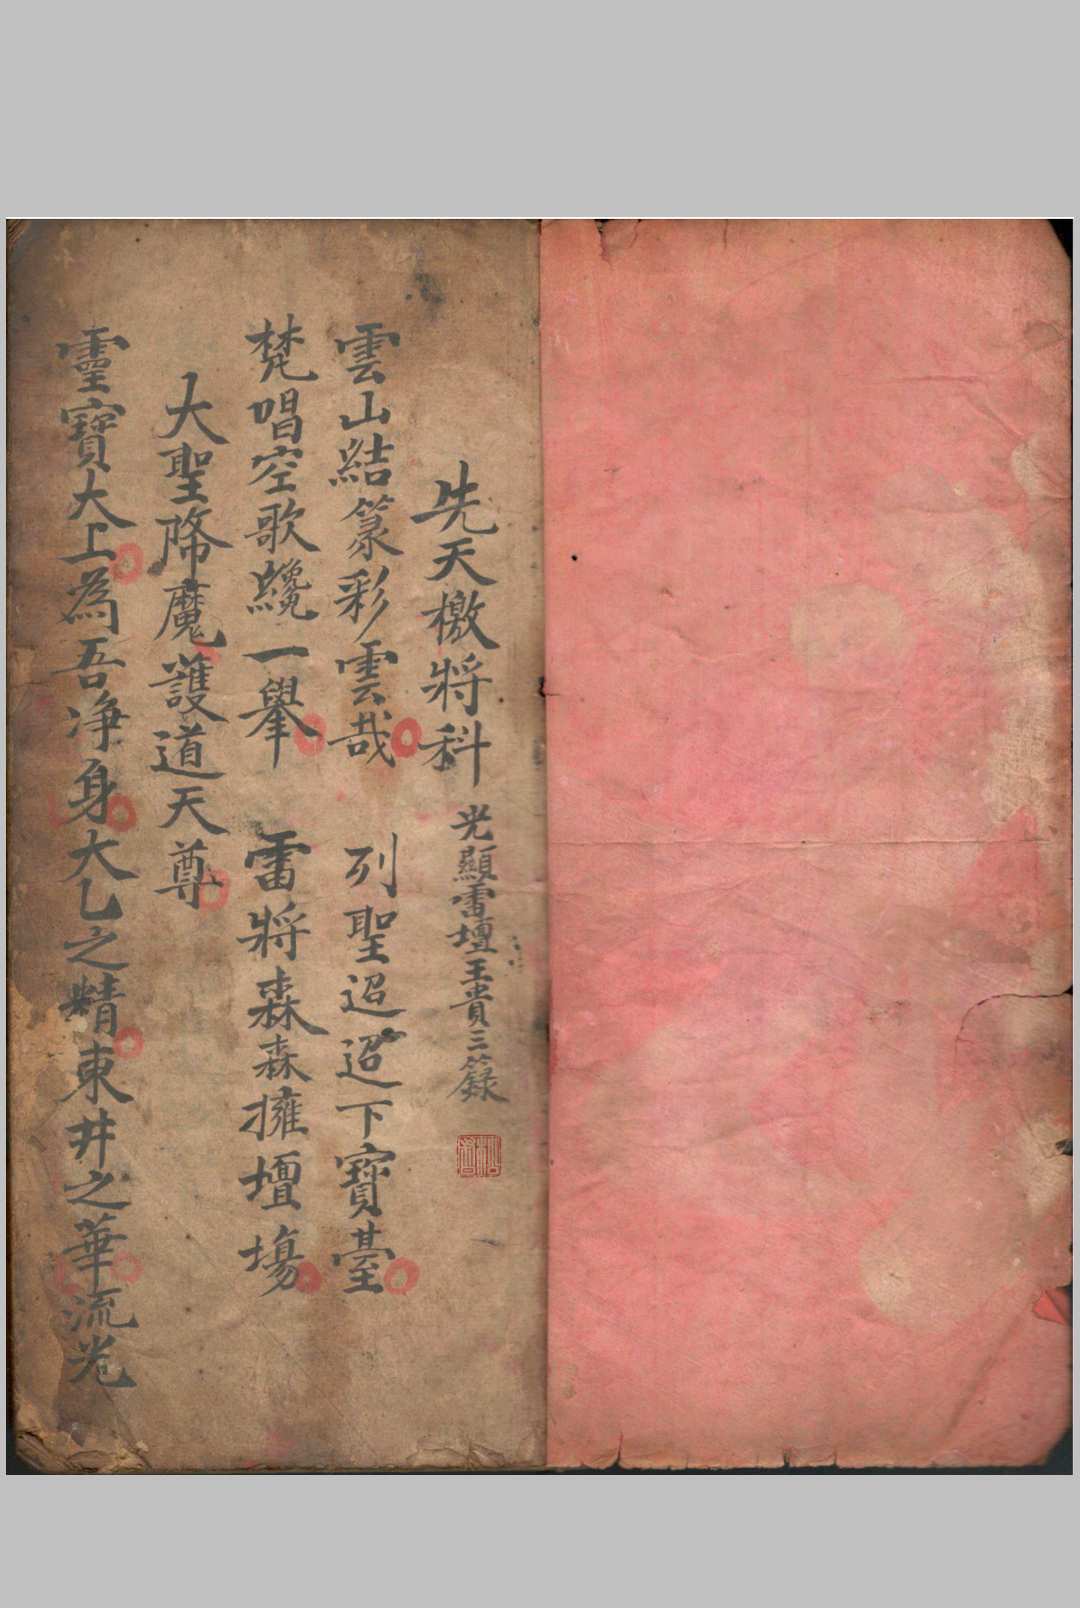 先天檄將科 光顯雷壇王貴三錄
雲山結篆彩雲哉 列聖迢迢下寶臺
梵唱空歌纔一舉 雷將森森擁壇場
大聖降魔護道天尊
靈寶大上為吾淨身大乙之精東井之華流光